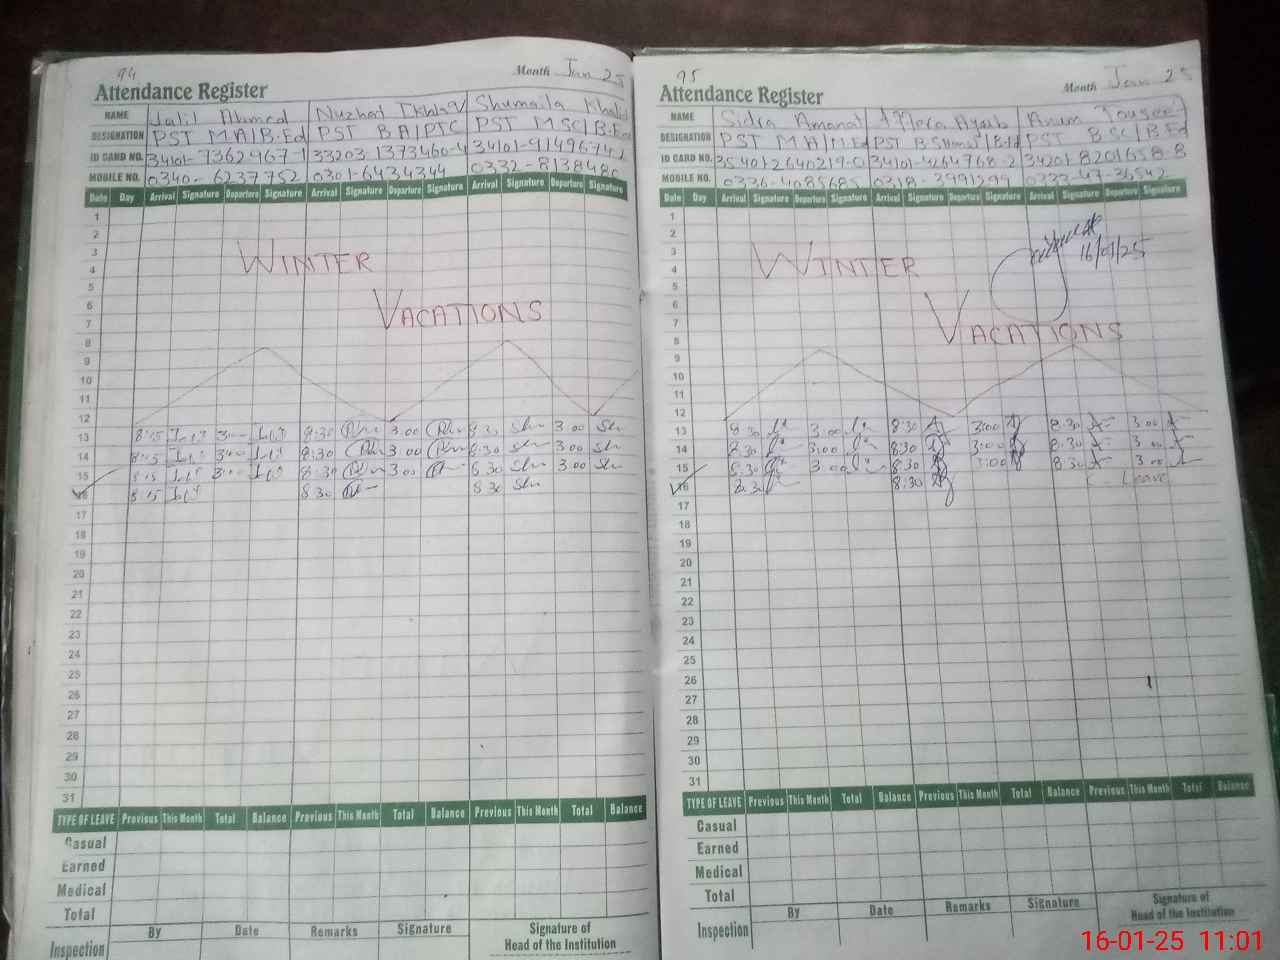 94
Month Jan 25
Attendance Register
NAME Jalil Ahmed Nuzhat Ikhlaq Shumaila Khalid
DESIGNATION PST MA/B.Ed PST BA/PTC PST MSC/B.Ed
ID CARD NO. 34101-7362967-1 33203-1373460-4 34101-9149674-2
MOBILE NO. 0340-6237752 0301-6434344 0332-813848
Date Day Arrival Signature Departure Signature Arrival Signature Departure Signature Arrival Signature Departure Signature
1
2
3
4
WINTER
5
6
7
VACATIONS
8
9
10
11
12
13 8:15 3:00 8:30 3.00 8:30 3.00
14 8:15 3:00 8:30 3.00 8:30 3.00
15 8:15 3:00 8:30 3.00 8.30 3.00
16 8:15 8 30 8 30
17
18
19
20
21
22
23
24
25
26
27
28
29
30
31
TYPE OF LEAVE Previous This Month Total Balance Previous This Month Total Balance Previous This Month Total Balance
Casual
Earned
Medical
Total
Inspection By Date Remarks Signature Signature of
Head of the Institution
95
Month Jan 25
Attendance Register
NAME Sidra Amanat Ayub Anum
DESIGNATION PST MA/M.Ed PST PST B.SC/B.Ed
ID CARD NO. 35401-2640219-0 34101-4264768-2 34201-8201658-8
MOBILE NO. 0336-4085685 0318-3991299 0333-47-36542
Date Day Arrival Signature Departure Signature Arrival Signature Departure Signature Arrival Signature Departure Signature
1
2
3
16/01/25
4
WINTER
5
6
7
VACATIONS
8
9
10
11
12
13 8.30 3.00 8:30 3:00 8.30 3.00
14 8.30 3.00 8:30 3:00 8.30 3.00
15 8.30 3.00 8:30 3:00 8:30 3.00
16 8.30 8:30 C- Leave
17
18
19
20
21
22
23
24
25
26
27
28
29
30
31
TYPE OF LEAVE Previous This Month Total Balance Previous This Month Total Balance Previous This Month Total Balance
Casual
Earned
Medical
Total
Inspection By Date Remarks Signature Signature of
Head of the Institution
16-01-25 11:01